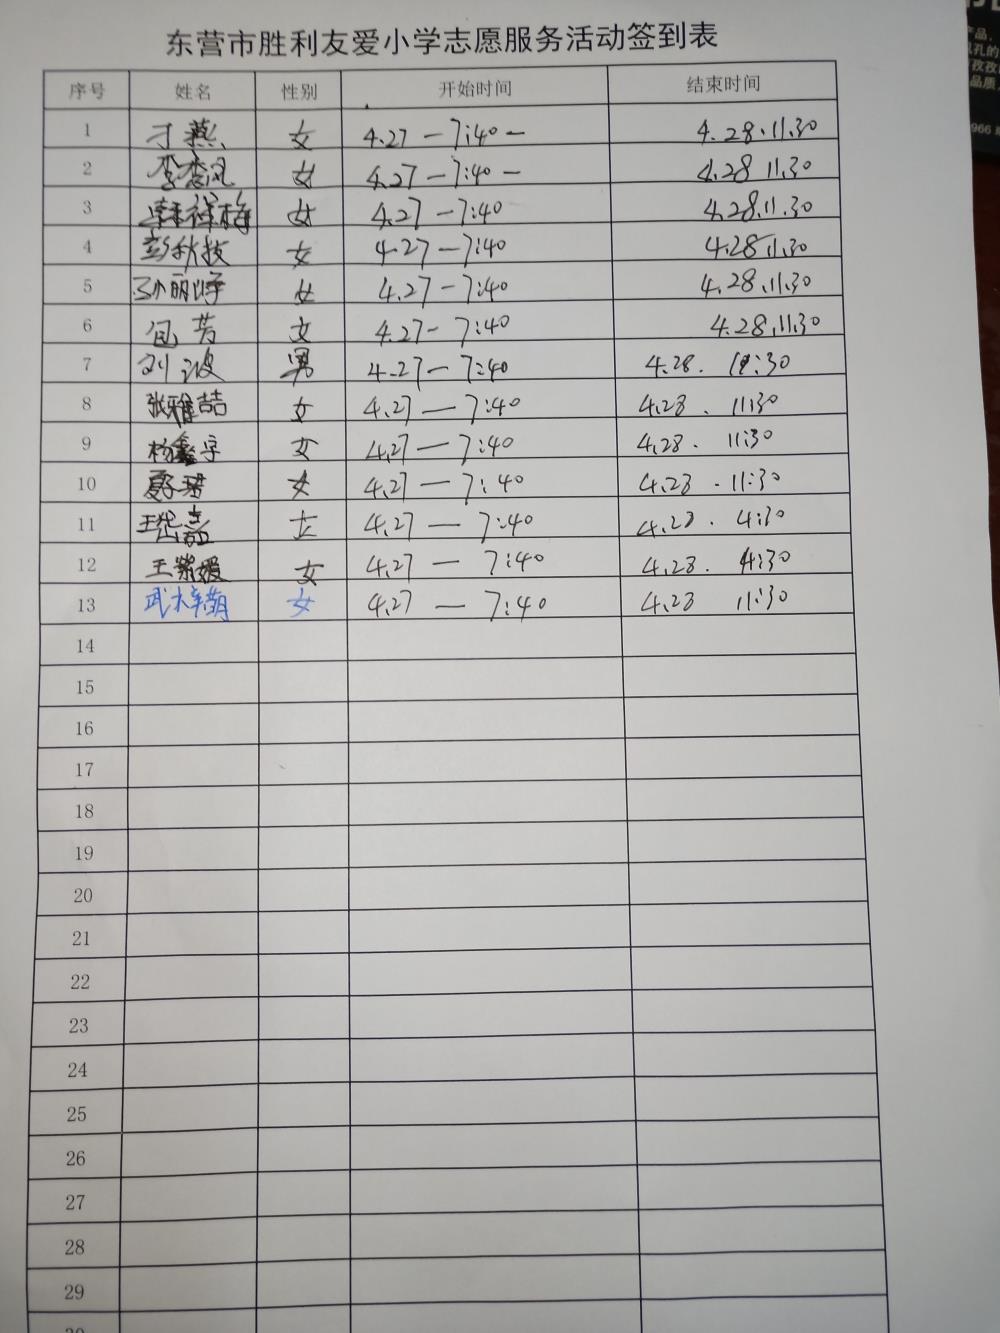 东营市胜利友爱小学志愿服务活动签到表
序号 姓名 性别 开始时间 结束时间
1 刁燕 女 4.27 — 7:40 — 4.28.11.30
2 李秀凤 女 4.27 — 7:40 — 4.28 11.30
3 女 4.27 — 7:40 4.28.11.30
4 彭秋技 女 4.27 — 7:40 4.28 11.30
5 孙丽婷 女 4.27 — 7:40 4.28.11.30
6 包芳 女 4.27 - 7:40 4.28.11.30
7 刘波 男 4.27 — 7:40 4.28. 11:30
8 张雅喆 女 4.27 — 7:40 4.28. 11:30
9 杨鑫宇 女 4.27 — 7:40 4.28. 11:30
10 女 4.27 — 7:40 4.28. 11:30
11 女 4.27 — 7:40 4.28. 4:30
12 王紫媛 女 4.27 — 7:40 4.28. 4:30
13 女 4.27 — 7:40 4.28 11:30
14
15
16
17
18
19
20
21
22
23
24
25
26
27
28
29
产品,
品质
966